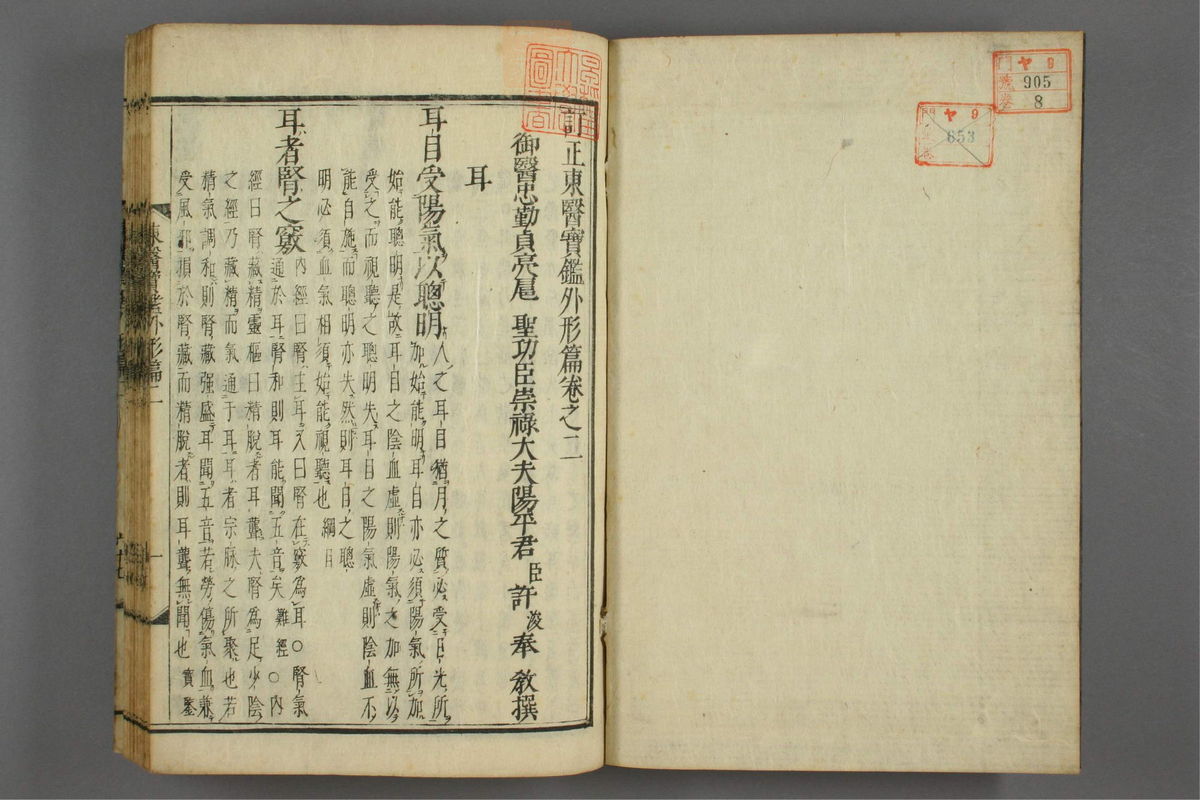 訂正東醫寶鑑外形篇卷之二
御醫忠勤貞亮扈聖功臣崇祿大夫陽平君臣許浚奉教撰
耳
耳目受陽氣以聰明
人之耳目猶月之質必受日光所
加始能明耳目亦必須陽氣所加
始能聰明是故耳目之陰血虛則陽氣之加無以
受之而視聽之聰明失耳目之陽氣虛則陰血不
能自施而聰明亦失然則耳目之聰
明必須血氣相須始能視聽也 綱目
耳者腎之竅
內經曰腎主耳又曰腎在竅為耳○腎氣
通於耳腎和則耳能聞五音矣 難經 ○內
經曰腎藏精靈樞曰精脫者耳聾夫腎為足少陰
之經乃藏精而氣通于耳耳者宗脉之所聚也若
精氣調和則腎藏強盛耳聞五音若勞傷氣血兼
受風邪損於腎藏而精脫者則耳聾無聞也 寶鑒
東醫寶鑑外形篇二
一
門 ヤ 9
號 905
卷 8
ヤ 9
653